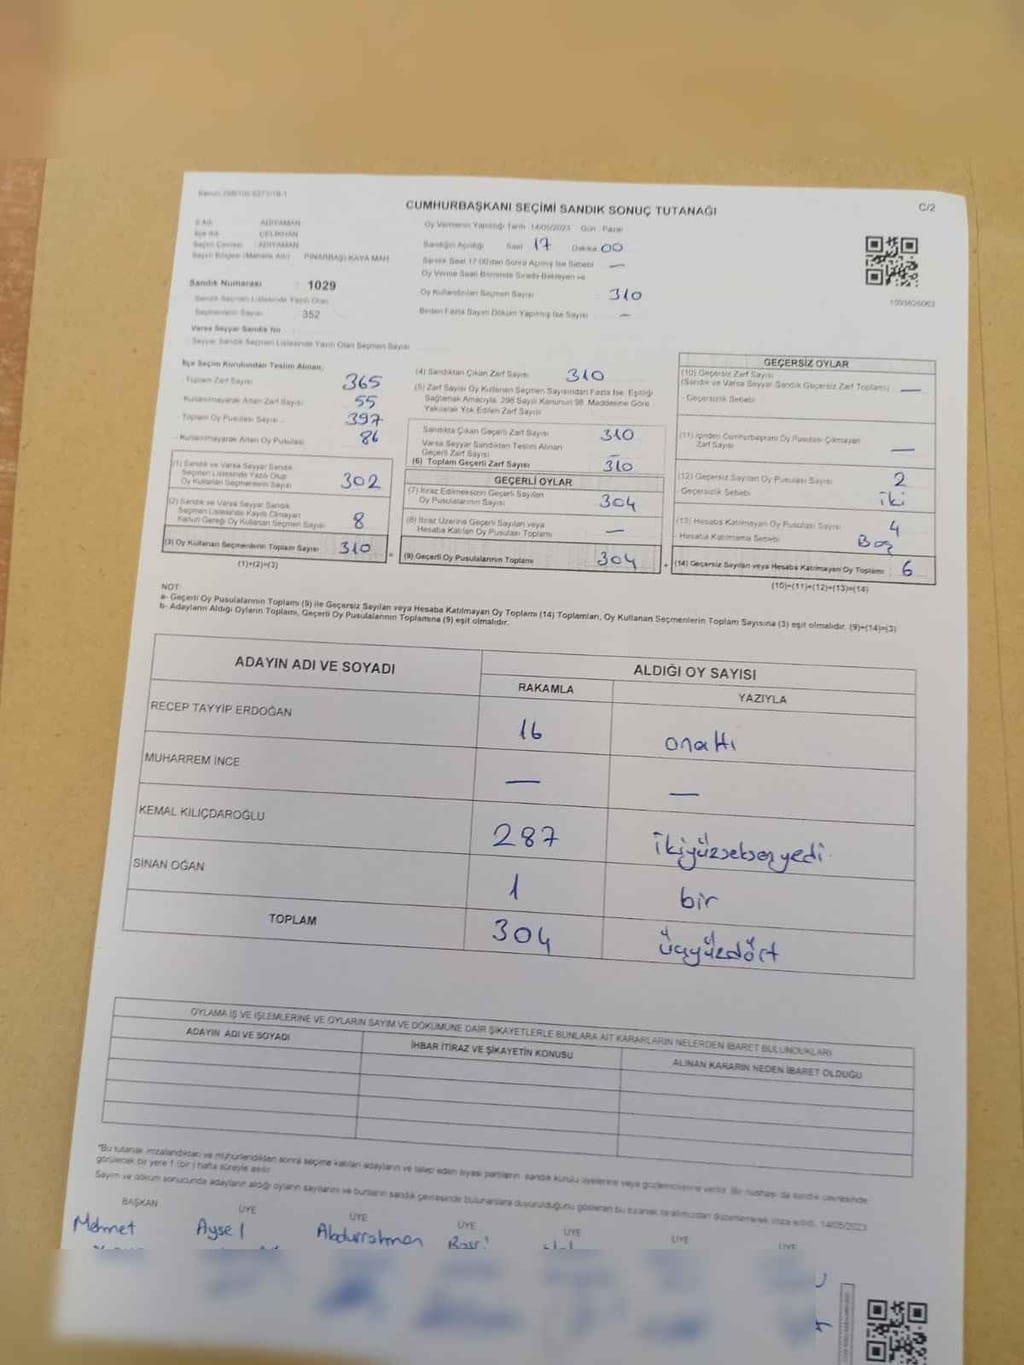 C/2
CUMHURBAŞKANI SEÇİMİ SANDIK SONUÇ TUTANAĞI
İl Adı ADIYAMAN
İlçe Adı ÇELİKHAN
Seçim Çevresi ADIYAMAN
Seçim Bölgesi (Mahalle Adı) PINARBAŞI KAYA MAH
Sandık Numarası : 1029
Sandık Seçmen Listesinde Yazılı Olan
Seçmenlerin Sayısı 352
Varsa Seyyar Sandık No
Seyyar Sandık Seçmen Listesinde Yazılı Olan Seçmen Sayısı
Oy Vermenin Yapıldığı Tarih 14/05/2023 Gün Pazar
Sandığın Açıldığı Saat 17 Dakika 00
Sandık Saat 17:00'den Sonra Açılmış İse Sebebi —
Oy Verme Saati Bitiminde Sırada Bekleyen ve
Oy Kullandırılan Seçmen Sayısı 310
Birden Fazla Sayım Döküm Yapılmış İse Sayısı —
İlçe Seçim Kurulundan Teslim Alınan;
- Toplam Zarf Sayısı 365
- Kullanılmayarak Artan Zarf Sayısı 55
- Toplam Oy Pusulası Sayısı 397
- Kullanılmayarak Artan Oy Pusulası 86
(1) Sandık ve Varsa Seyyar Sandık
Seçmen Listesinde Yazılı Olup
Oy Kullanan Seçmenlerin Sayısı 302
(2) Sandık ve Varsa Seyyar Sandık
Seçmen Listesinde Kayıtlı Olmayan
Kanun Gereği Oy Kullanan Seçmen Sayısı 8
(3) Oy Kullanan Seçmenlerin Toplam Sayısı 310
(1)+(2)=(3)
(4) Sandıktan Çıkan Zarf Sayısı 310
(5) Zarf Sayısı Oy Kullanan Seçmen Sayısından Fazla İse, Eşitliği
Sağlamak Amacıyla, 298 Sayılı Kanunun 98. Maddesine Göre
Yakılarak Yok Edilen Zarf Sayısı
Sandıkta Çıkan Geçerli Zarf Sayısı 310
Varsa Seyyar Sandıktan Teslim Alınan
Geçerli Zarf Sayısı —
(6) Toplam Geçerli Zarf Sayısı 310
GEÇERLİ OYLAR
(7) İtiraz Edilmeksizin Geçerli Sayılan
Oy Pusulalarının Sayısı 304
(8) İtiraz Üzerine Geçerli Sayılan veya
Hesaba Katılan Oy Pusulası Toplamı —
(9) Geçerli Oy Pusulalarının Toplamı 304
GEÇERSİZ OYLAR
(10) Geçersiz Zarf Sayısı
(Sandık ve Varsa Seyyar Sandık Geçersiz Zarf Toplamı) —
- Geçersizlik Sebebi
(11) İçinden Cumhurbaşkanı Oy Pusulası Çıkmayan
Zarf Sayısı —
(12) Geçersiz Sayılan Oy Pusulası Sayısı 2
- Geçersizlik Sebebi iki
(13) Hesaba Katılmayan Oy Pusulası Sayısı 4
- Hesaba Katılmama Sebebi Boş
(14) Geçersiz Sayılan veya Hesaba Katılmayan Oy Toplamı 6
(10)+(11)+(12)+(13)=(14)
NOT:
a- Geçerli Oy Pusulalarının Toplamı (9) ile Geçersiz Sayılan veya Hesaba Katılmayan Oy Toplamı (14) Toplamları, Oy Kullanan Seçmenlerin Toplam Sayısına (3) eşit olmalıdır. (9)+(14)=(3)
b- Adayların Aldığı Oyların Toplamı, Geçerli Oy Pusulalarının Toplamına (9) eşit olmalıdır.
ADAYIN ADI VE SOYADI ALDIĞI OY SAYISI
RAKAMLA YAZIYLA
RECEP TAYYİP ERDOĞAN 16 onaltı
MUHARREM İNCE — —
KEMAL KILIÇDAROĞLU 287 ikiyüzseksenyedi
SİNAN OĞAN 1 bir
TOPLAM 304 üçyüzdört
OYLAMA İŞ VE İŞLEMLERİNE VE OYLARIN SAYIM VE DÖKÜMÜNE DAİR ŞİKAYETLERLE BUNLARA AİT KARARLARIN NELERDEN İBARET BULUNDUKLARI
ADAYIN ADI VE SOYADI İHBAR İTİRAZ VE ŞİKAYETİN KONUSU ALINAN KARARIN NEDEN İBARET OLDUĞU
"Bu tutanak imzalandıktan ve mühürlendikten sonra seçime katılan adayların ve talep eden siyasi partilerin sandık kurulu üyelerine veya gözlemcilerine verilir. Bir nüshası da sandık çevresinde
görülecek bir yere 1 (bir) hafta süreyle asılır.
Sayım ve döküm sonucunda adayların aldığı oyların sayılarını ve bunların sandık çevresinde bulunanlara duyurulduğunu gösteren bu tutanak tarafımızdan düzenlenerek imza edildi. 14/05/2023
BAŞKAN ÜYE ÜYE ÜYE ÜYE ÜYE ÜYE
Mehmet Aysel Abdurrahman